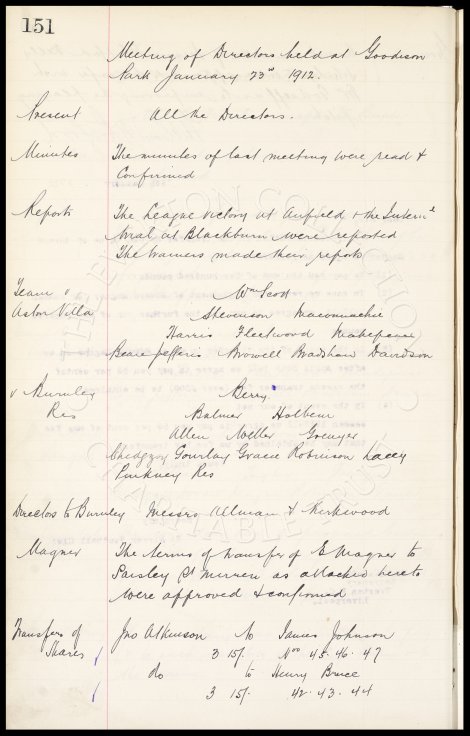 151
Meeting of Directors held at Goodison
Park January 23rd 1912.
Present All the Directors.
Minutes The minutes of last meeting were read &
Confirmed
Reports The League victory at Anfield & the Intern'l
trial at Blackburn were reported
The trainers made their reports
Team v Wm Scott
Aston Villa Stevenson Maconnachie
Harris Fleetwood Makepeace
Beare Jefferis Browell Bradshaw Davidson
v Burnley Berry
Res Balmer Holbem
Allen Weller Grenyer
Chedgzoy Gourlay Gracie Robinson Lacey
Pinkney Res
Directors to Burnley Messrs Allman & Kirkwood
Magner The terms of transfer of E Magner to
Paisley St Mirren as attached hereto
were approved & confirmed
Transfers of Jno Atkinson to James Johnson
Shares 3 15/- Nos 45.46.47
do to Henry Bruce
3 15/- 42.43.44
THE EVERTON COLLECTION
CHARITABLE TRUST